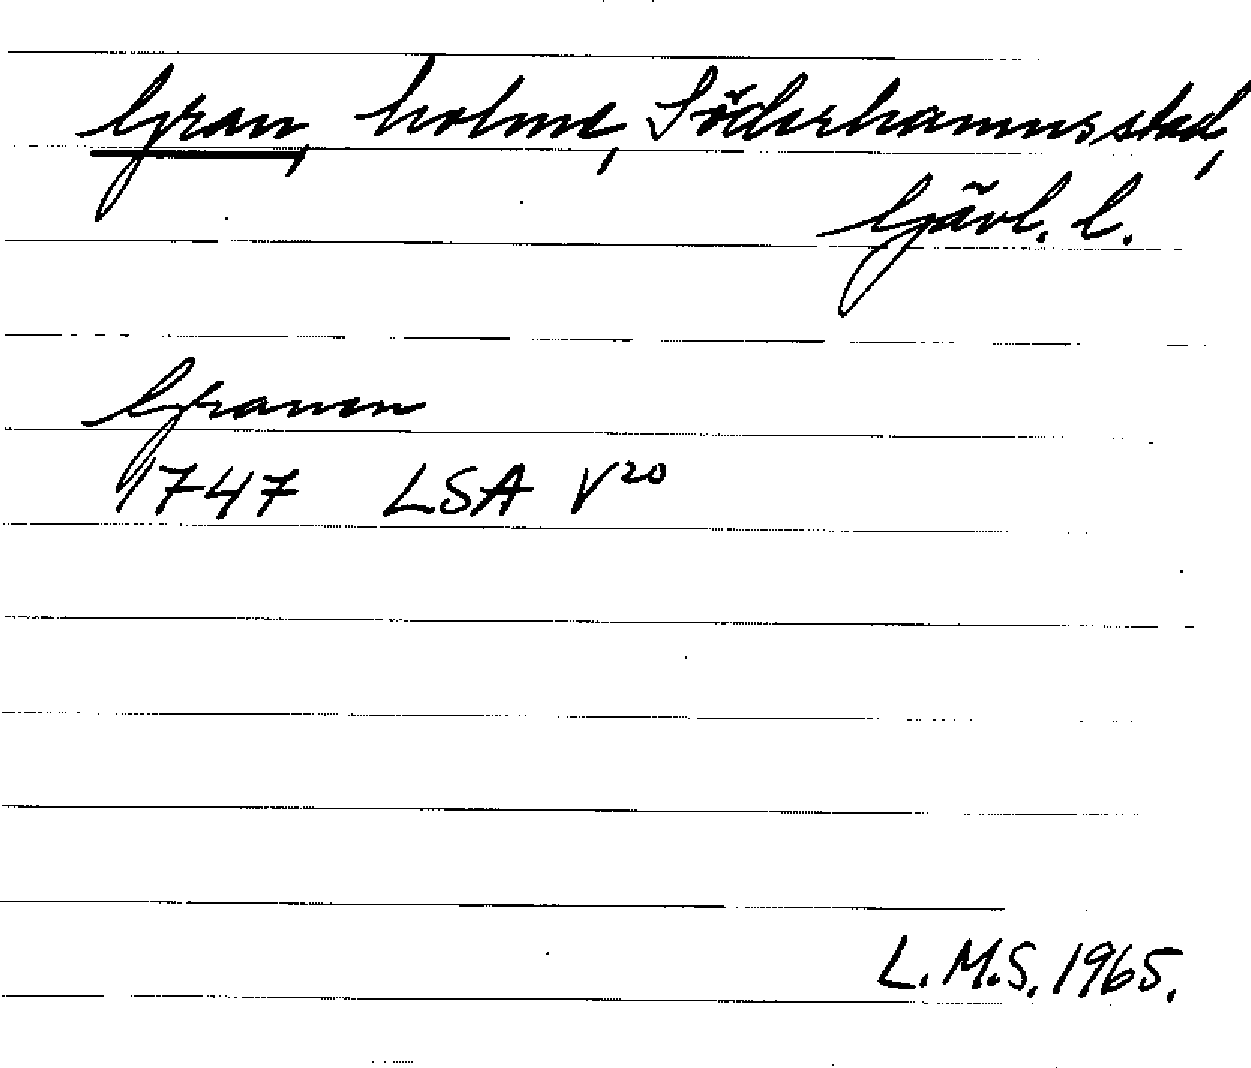 Gran, holme, Söderhamns stad,
Gävl. l.
Granen
1747 LSA V20
L.M.S. 1965.